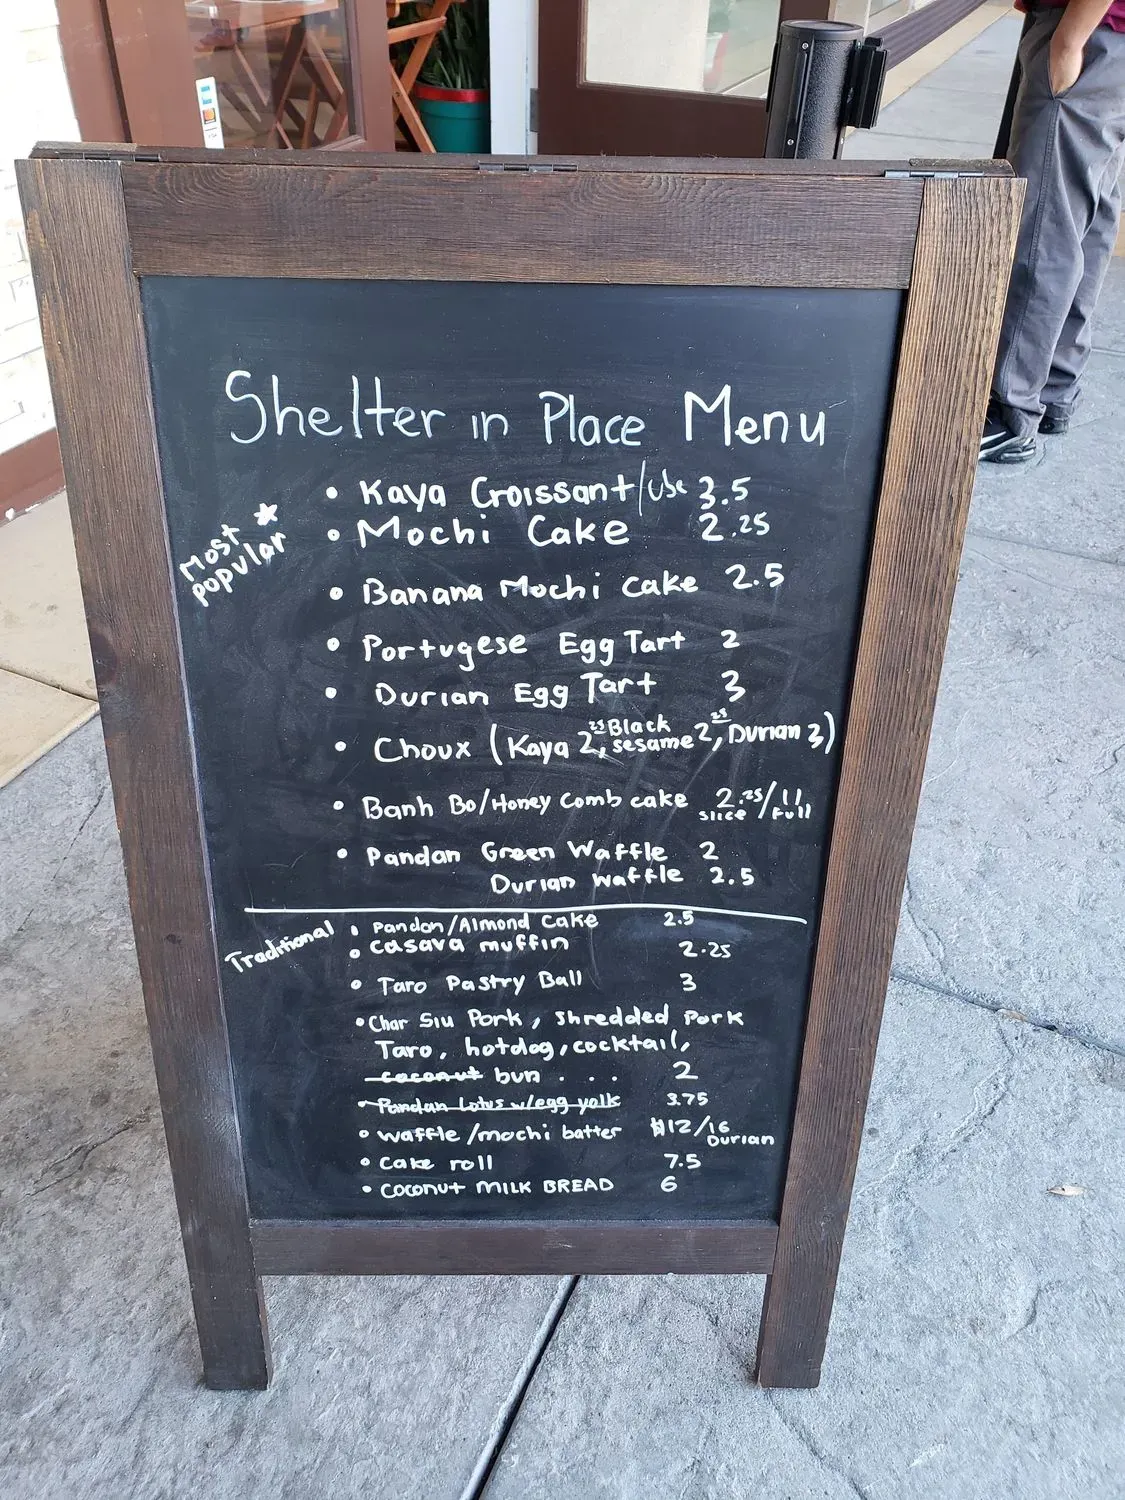 Shelter in Place Menu
Most ★ popular
• Kaya Croissant/ube 3.5
• Mochi Cake 2.25
• Banana Mochi Cake 2.5
• Portugese Egg Tart 2
• Durian Egg Tart 3
• Choux (Kaya 2.25, Black sesame 2.25, Durian 3)
• Banh Bo/Honey Comb cake 2.25/11
slice full
• Pandan Green Waffle 2
Durian Waffle 2.5
Traditional
• Pandan/Almond Cake 2.5
• Casava muffin 2.25
• Taro Pastry Ball 3
• Char Siu Pork, Shredded Pork
Taro, hotdog, cocktail,
coconut bun . . . 2
• Pandan Lotus w/egg yolk 3.75
• Waffle/mochi batter $12/16
Durian
• Cake roll 7.5
• COCONUT MILK BREAD 6